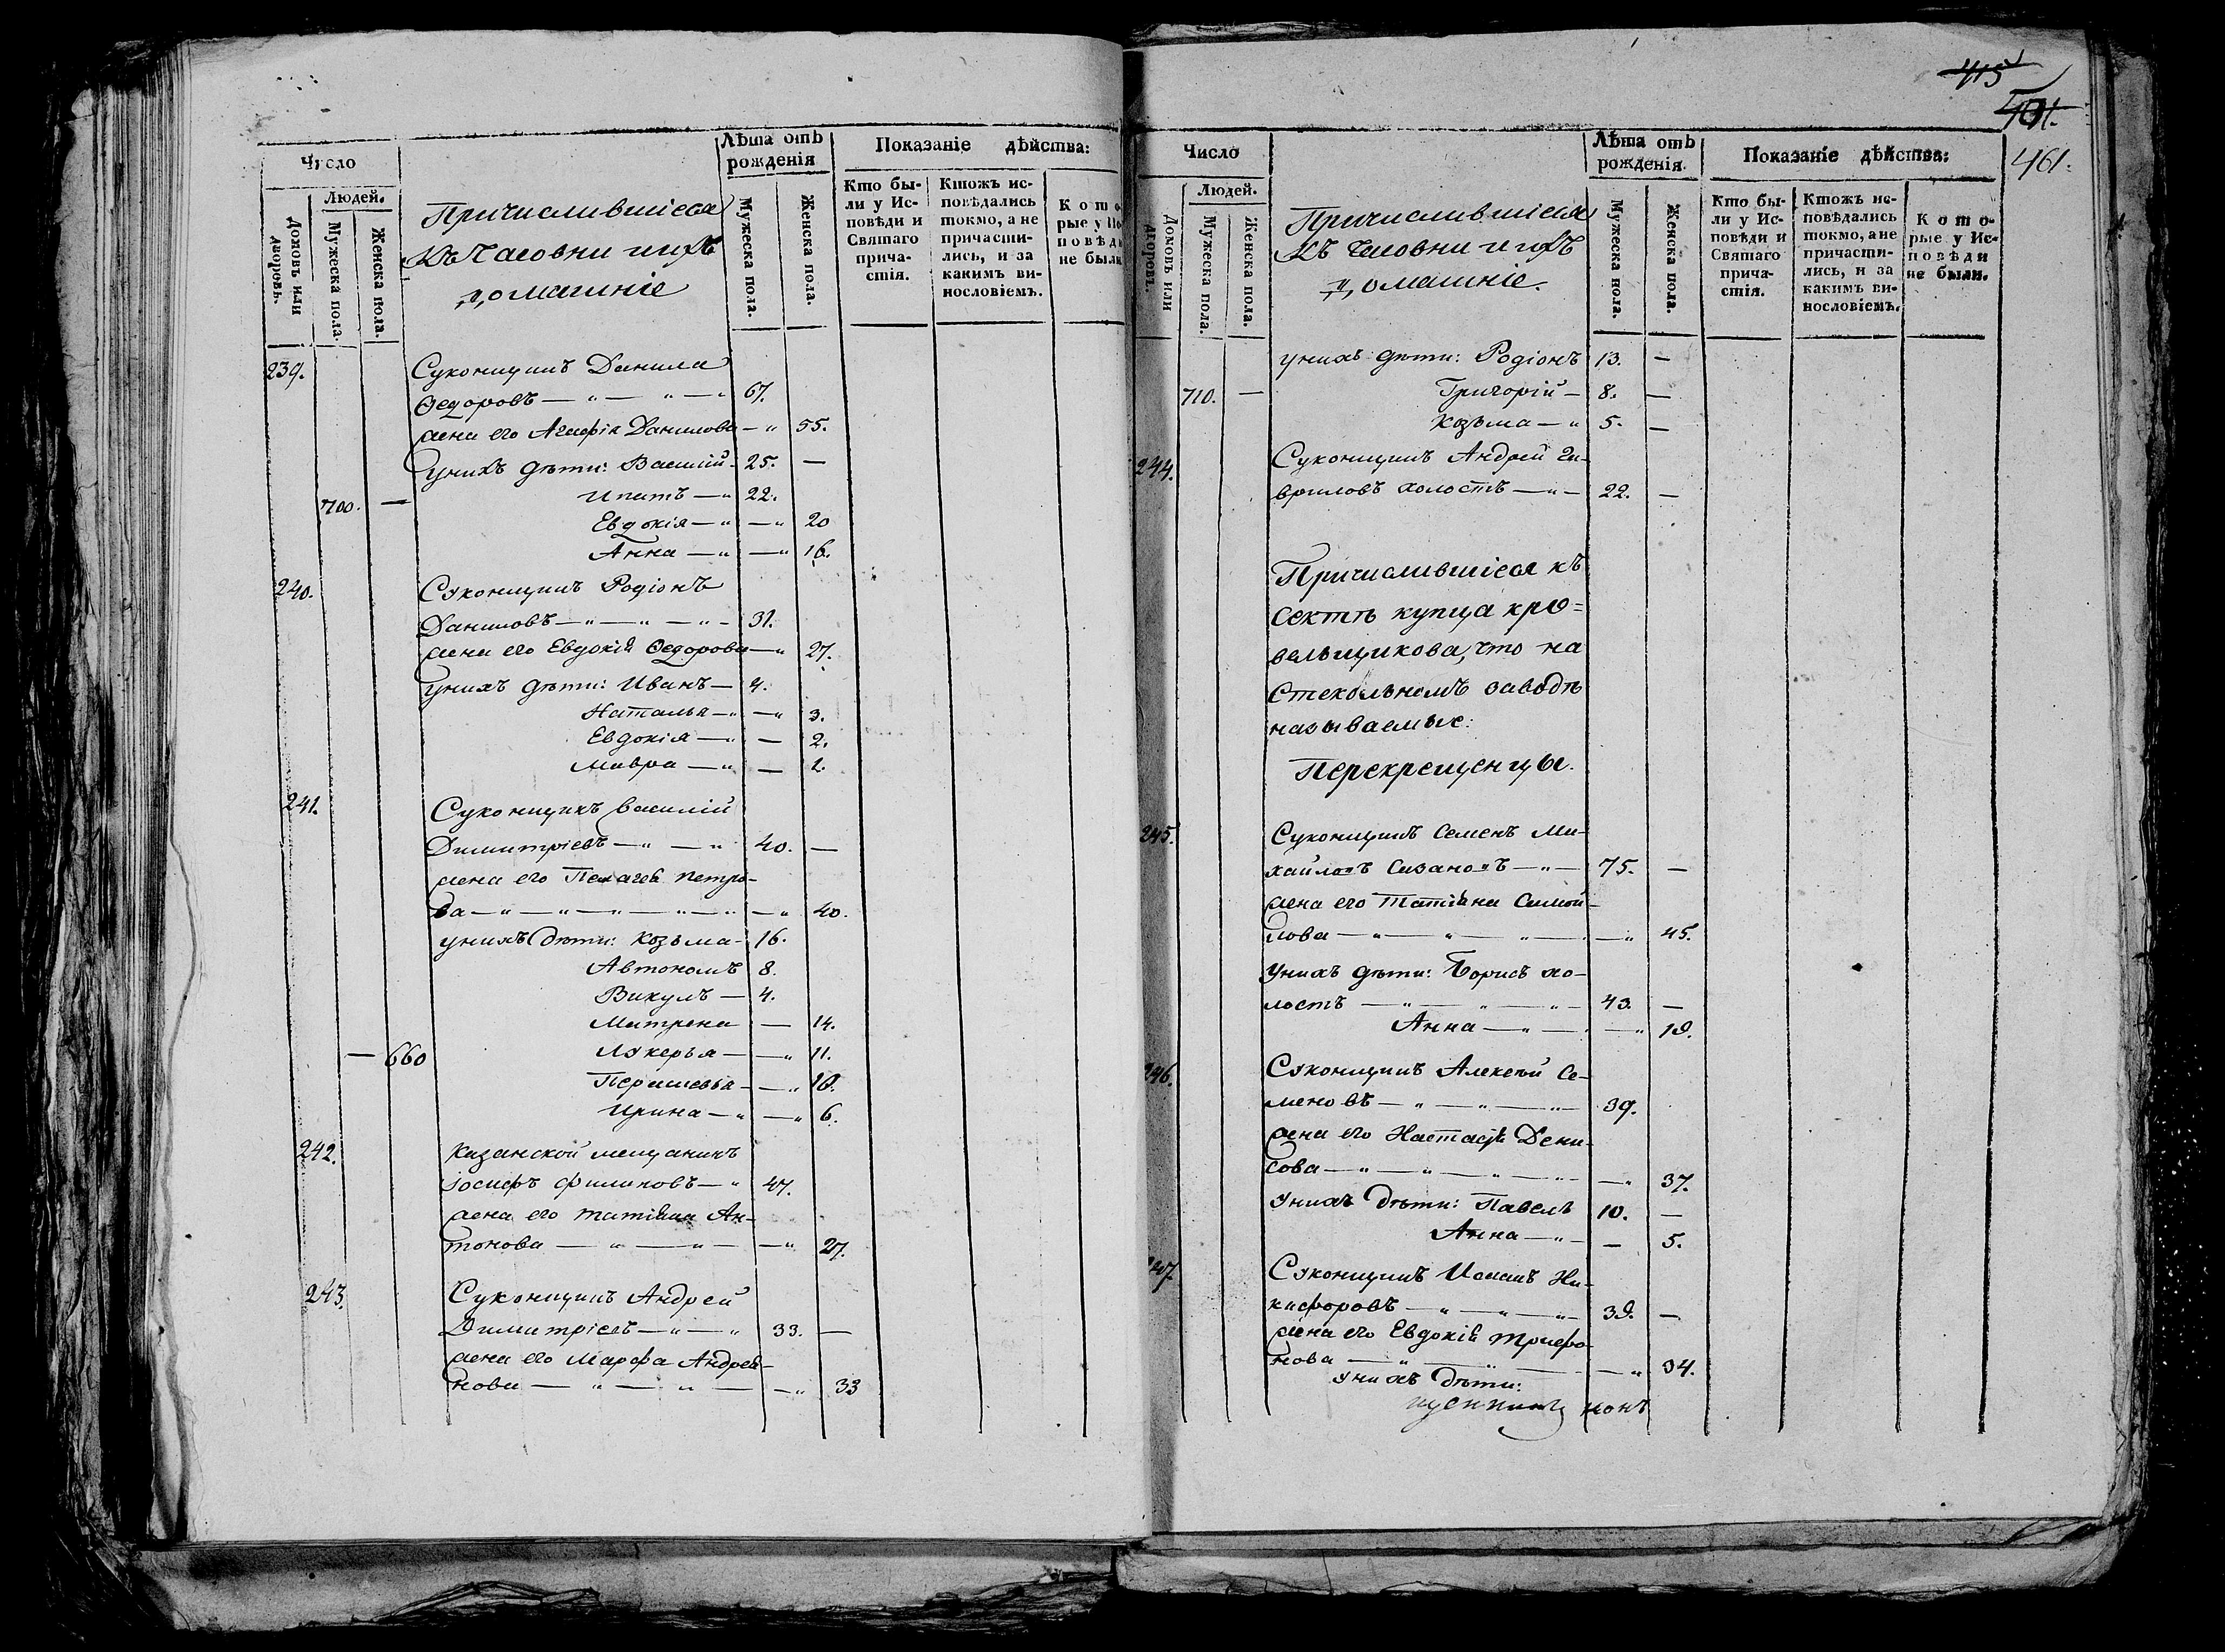 Число
Людей.
Домовъ или дворовъ.
Мужеска пола.
Женска пола.
Причислившіеся
къ Часовни и ихъ
домашніе
Лѣта отъ рожденія
Мужеска пола.
Женска пола.
Показаніе дѣйства:
Кто бы-
ли у Ис-
повѣди и
Святаго
прича-
стія.
Ктожъ ис-
повѣдались
токмо, а не
причасти-
лись, и за
какимъ ви-
нословіемъ.
Кото-
рые у Ис
повѣди
не были
239. Суконщикъ Данила
Ѳедоровъ — " — " — " 67.
жена его Агафія Данилова — " 55.
у нихъ дѣти: Василій - 25. —
700. — Ипатъ — " 22.
Евдокія — " — " 20
Анна — " — " 16.
240. Суконщикъ Родіонъ
Даниловъ — " — " — " - 31.
жена его Евдокія Ѳедорова — " 27.
у нихъ дѣти: Иванъ — 4.
Наталья — " — " 3.
Евдокія — " — 2.
Мавра — " — 1.
241. Суконщикъ Василій
Димитріевъ — " — " 40. —
жена его Пелагея Петро-
ва — " — " — " — " — " — " 40.
у нихъ дѣти: Козьма - 16.
Автономъ 8.
Викулъ — 4.
Матрена — 14.
— 660 Лукерья — — " 11.
Перасковья - — " 10.
Ирина — " — " 6.
242. Казанской мещанинъ
Іосифъ Филиповъ — " 47.
жена его Татіяна Ан-
тонова — " — " — — " 27.
243. Суконщикъ Андрей
Димитріевъ — " — " 33. —
жена его Марфа Андрея-
нова — " — " — — " 33
415
401.
461.
Число
Людей.
Домовъ или дворовъ.
Мужеска пола.
Женска пола.
Причислившіеся
къ Часовни и ихъ
домашніе.
Лѣта отъ рожденія.
Мужеска пола.
Женска пола.
Показаніе дѣйства:
Кто бы-
ли у Ис-
повѣди и
Святаго
прича-
стія.
Ктожъ ис-
повѣдались
токмо, а не
причасти-
лись, и за
какимъ ви-
нословіемъ.
Кото-
рые у Ис-
повѣди
не были.
у нихъ дѣти: Родіонъ 13. —
710. — Григорій — 8. —
Козьма — " 5. —
244. Суконщикъ Андрей Га-
вриловъ холостъ — " — 22. —
Причислившіеся къ
сектѣ купца кро=
вельщикова, что на
Стекольномъ заводѣ
называемые:
Перекрещенцы.
245. Суконщикъ Семенъ Ми-
хайловъ Сазановъ — " — 75. —
жена его Татіяна Самой-
лова — " — " — " — — " 45.
У нихъ дѣти: Борисъ хо-
лостъ — " — " — " — 43. —
Анна — " — — " 19.
246. Суконщикъ Алексѣй Се-
меновъ — " — " — " — 39.
жена его Настасія Дени-
сова — " — " — " — " — " 37.
У нихъ дѣти: Павелъ 10. —
Анна — " — — 5.
247. Суконщикъ Ни-
кифоровъ — " — " — " 39. —
жена его Евдокія Трифо-
нова — " — " — — " 34.
У нихъ дѣти: